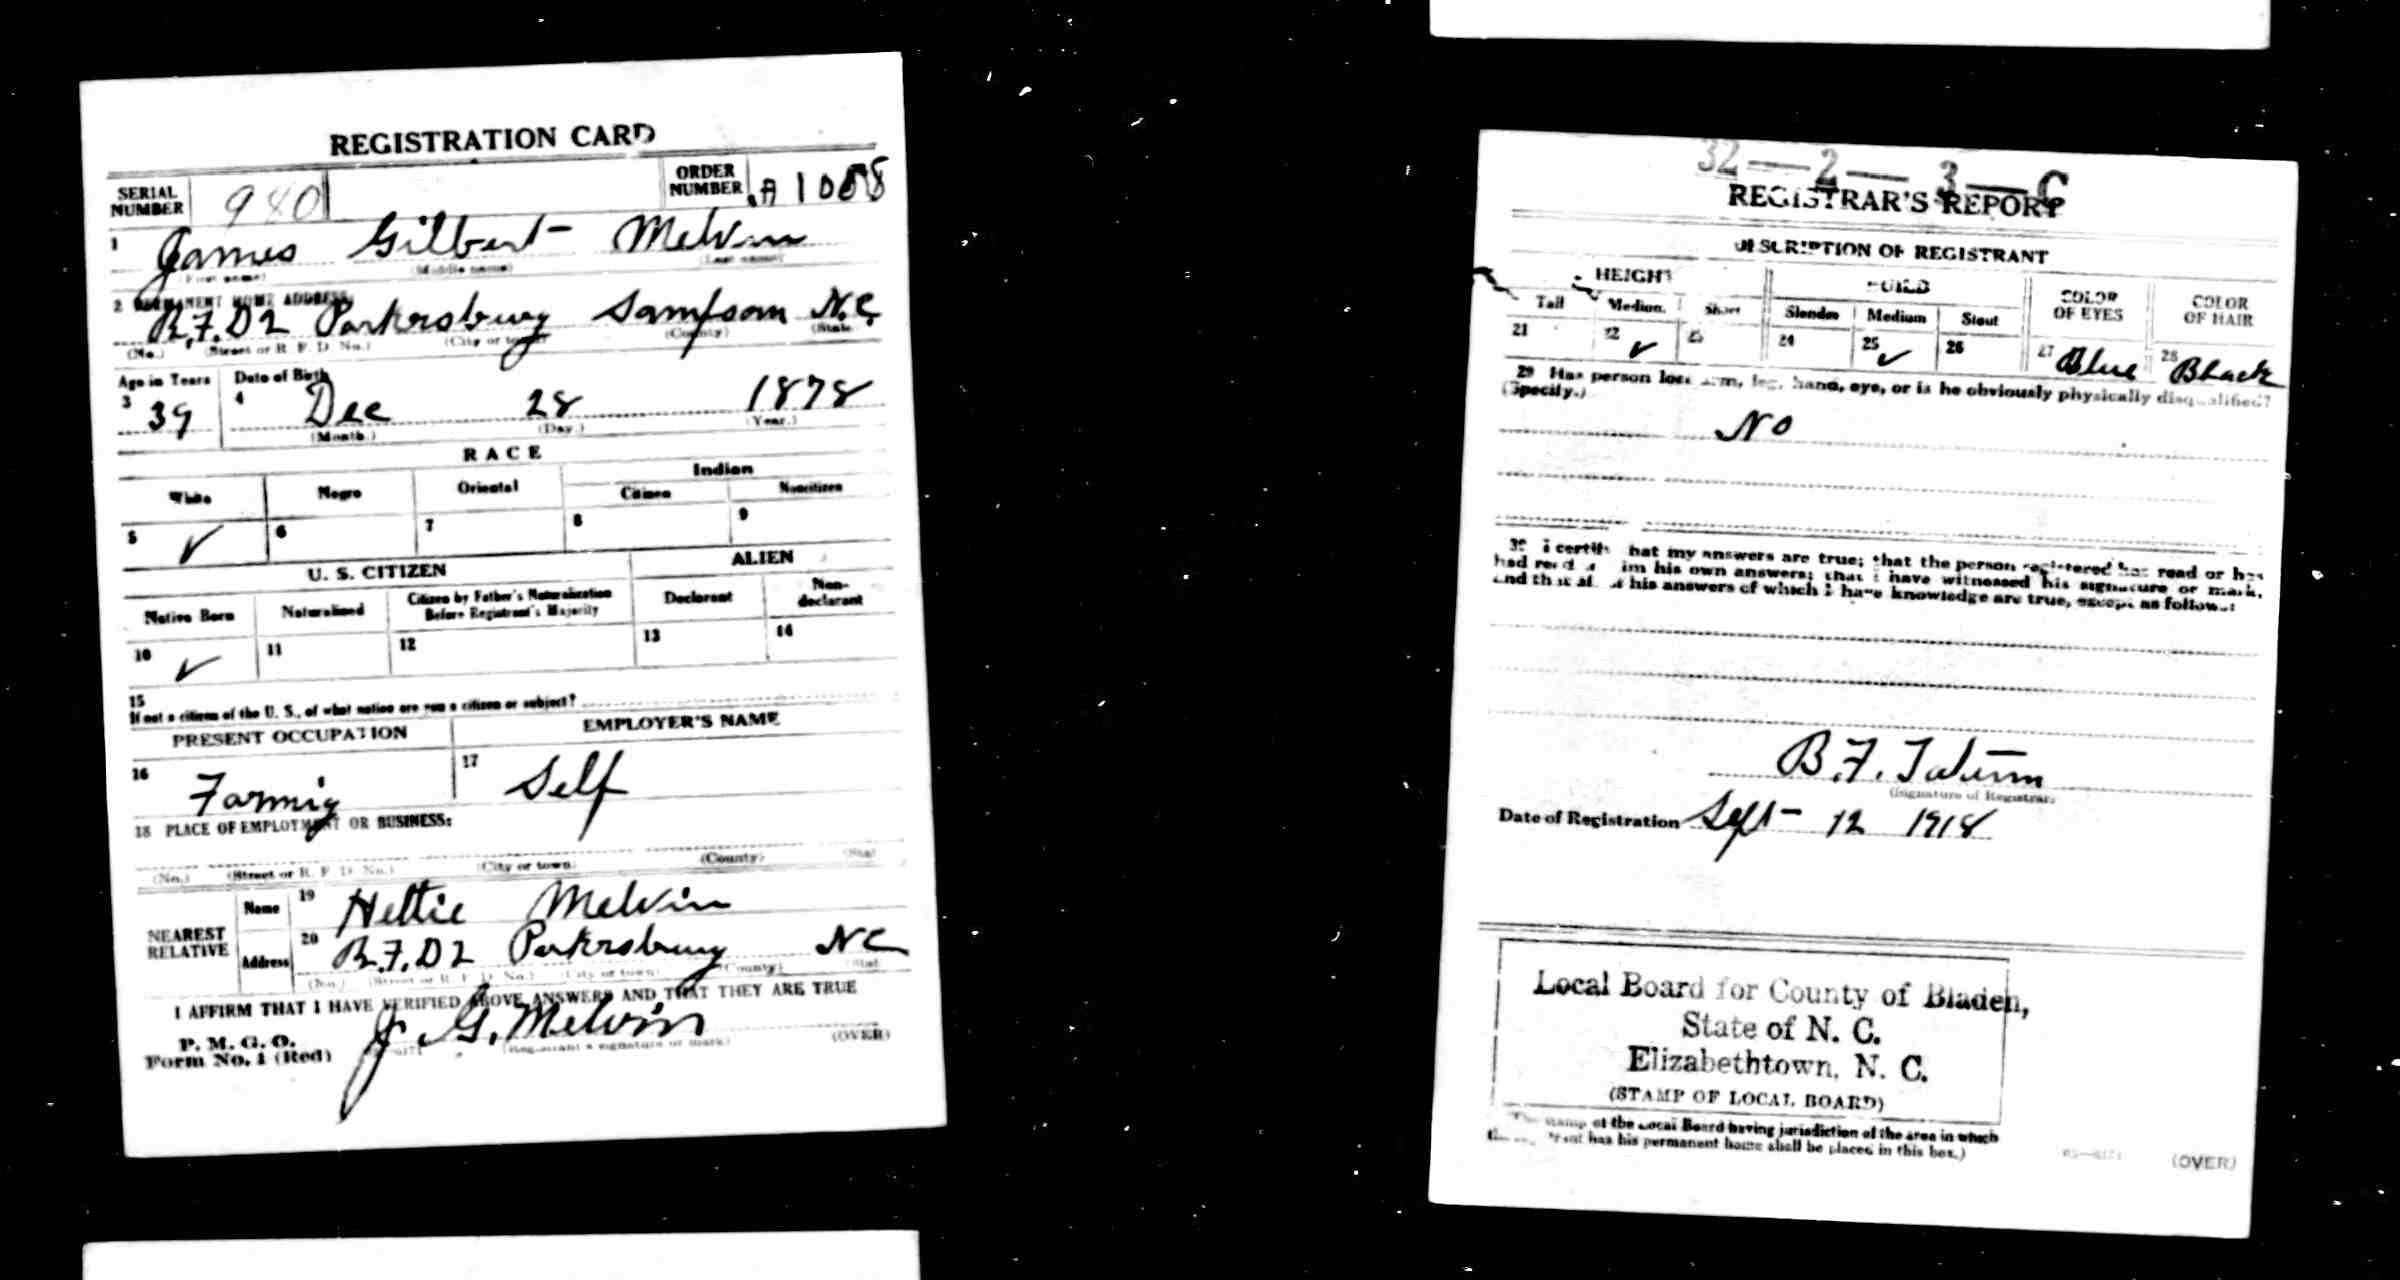 REGISTRATION CARD
SERIAL NUMBER 980 ORDER NUMBER A
1 James Gilbert Melvin
(First name) (Middle name) (Last name)
2 PERMANENT HOME ADDRESS:
R.F.D 2 Parkersburg Sampson N.C.
(No.) (Street or R. F. D. No.) (City or town) (County) (State)
Age in Years Date of Birth
3 39 4 Dec 28 1878
(Month.) (Day.) (Year.)
RACE
White Negro Oriental Indian
Citizen Noncitizen
5 ✓ 6 7 8 9
U. S. CITIZEN ALIEN
Native Born Naturalized Citizen by Father's Naturalization Before Registrant's Majority Declarant Non-declarant
10 ✓ 11 12 13 14
15
If not a citizen of the U. S., of what nation are you a citizen or subject?
PRESENT OCCUPATION EMPLOYER'S NAME
16 Farmig 17 Self
18 PLACE OF EMPLOYMENT OR BUSINESS:
(No.) (Street or R. F. D. No.) (City or town) (County) (Stat
NEAREST RELATIVE Name 19 Hettie Melvin
Address 20 R.F.D 2 Parkersburg NC
(No.) (Street or R. F. D. No.) (City or town) (County) (Stat
I AFFIRM THAT I HAVE VERIFIED ABOVE ANSWERS AND THAT THEY ARE TRUE
P. M. G. O.
Form No. 1 (Red) J. G. Melvin
(Registrant's signature or mark) (OVER)
32—2—3—C
REGISTRAR'S REPORT
DESCRIPTION OF REGISTRANT
HEIGHT BUILD COLOR OF EYES COLOR OF HAIR
Tall Medium Short Slender Medium Stout
21 22 ✓ 23 24 25 ✓ 26 27 Blue 28 Black
29 Has person lost arm, leg, hand, eye, or is he obviously physically disqualified?
(Specify.)
No
30 I certify that my answers are true; that the person registered has read or has
had read to him his own answers; that I have witnessed his signature or mark,
and that all of his answers of which I have knowledge are true, except as follows:
B. F. Tatum
(Signature of Registrar)
Date of Registration Sept- 12 1918
Local Board for County of Bladen,
State of N. C.
Elizabethtown, N. C.
(STAMP OF LOCAL BOARD)
(The stamp of the Local Board having jurisdiction of the area in which
the registrant has his permanent home shall be placed in this box.)
(OVER)